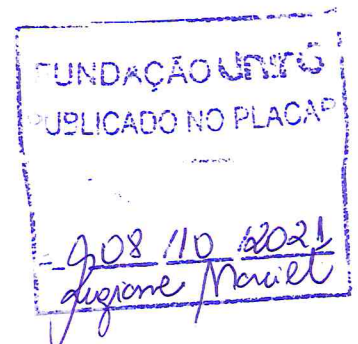 FUNDAÇÃO UNIRG
PUBLICADO NO PLACAR
08 / 10 / 2021
Maciel